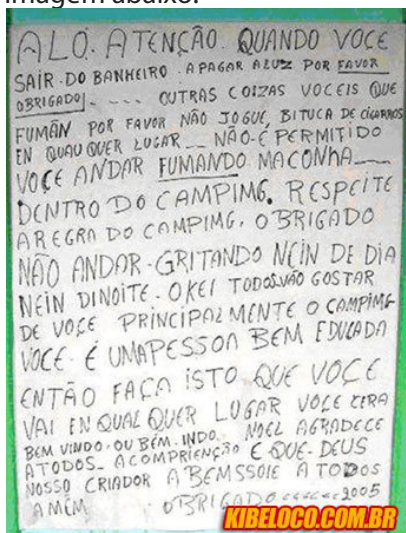 imagem abaixo.
ALÔ. ATENÇÃO. QUANDO VOCE
SAIR. DO BANHEIRO. APAGAR ALUZ POR FAVOR
OBRIGADO. _ . _ _ OUTRAS COIZAS VOCEIS QUE
FUMÃN POR FAVOR NÃO JOGUE, BITUCA DE CIGARROS
EN QUAUQUER LUGAR _ _ NÃO-É PERMITIDO
VOCE ANDAR FUMANDO MACONHA _ _
DENTRO DO CAMPIMG. RESPEITE
AREGRA DO CAMPIMG. OBRIGADO
NÃO ANDAR-GRITANDO NEIN DE DIA
NEIN DINOITE. OKEI TODOS.VÃO GOSTAR
DE VOCE PRINCIPALMENTE O CAMPIMG
VOCE. É UMAPESSOA BEM EDUCADA
ENTÃO FAÇA ISTO QUE VOCE
VAI EN QUAL QUER LUGAR VOCE CERA
BEM VINDO. OU BEM.INDO. NOEL AGRADECE
ATODOS_ ACOMPRIENÇÃO E QUE-DEUS
NOSSO CRIADOR ABEMSSOIE ATODOS
AMÉM OBRIGADO 2005
KIBELOCO.COM.BR